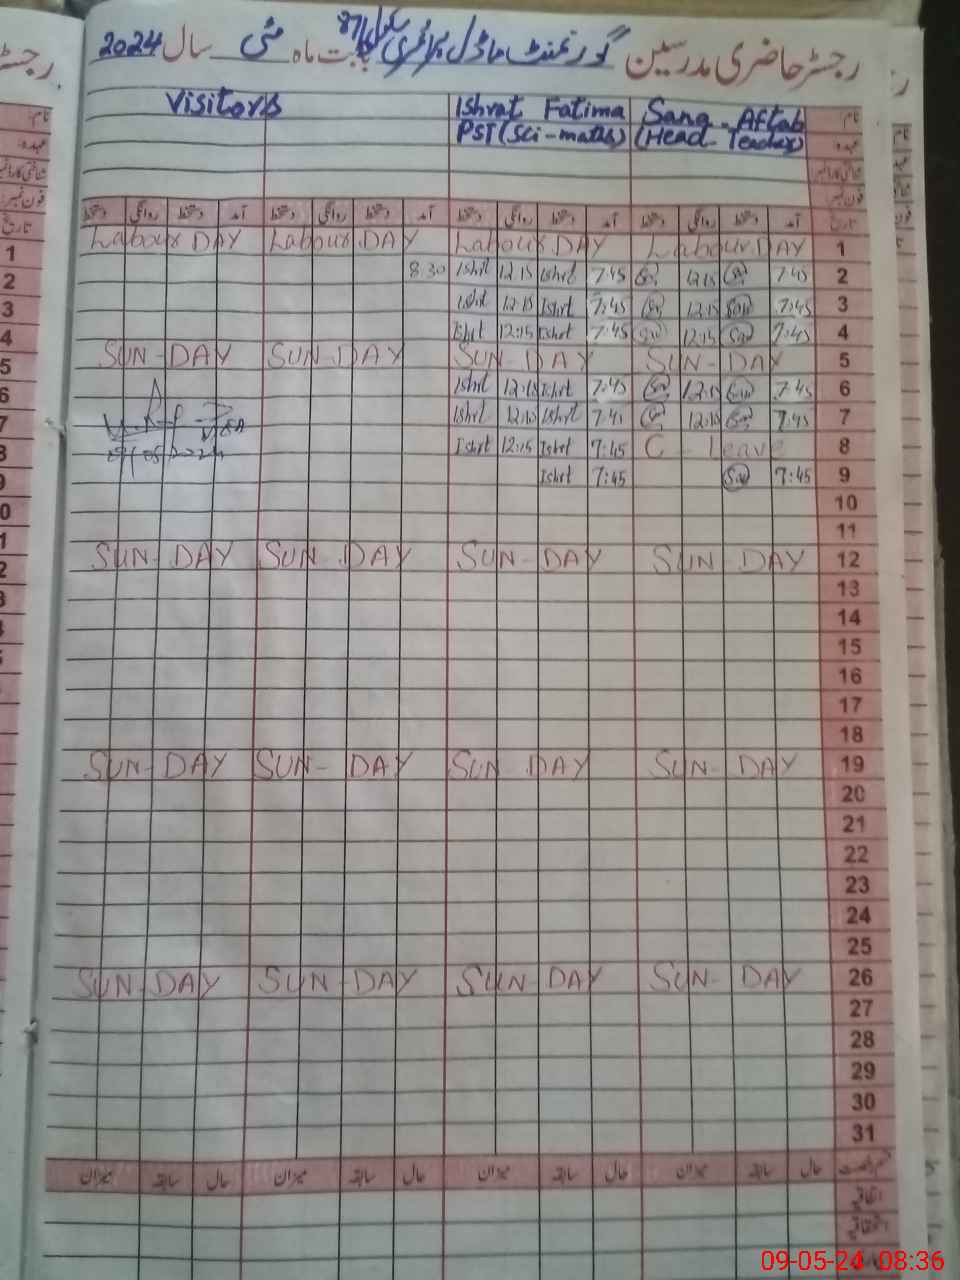 رجسٹر حاضری مدرسین گورنمنٹ ماڈل پرائمری سکول 87 بابت ماہ مئی سال 2024
Visitors Ishrat Fatima Sana Aftab نام
PST (Sci-maths) (Head Teacher) عہدہ
شناختی کارڈ نمبر
فون نمبر
دستخط روانگی دستخط آمد دستخط روانگی دستخط آمد دستخط روانگی دستخط آمد دستخط روانگی دستخط آمد تاریخ
Labour DAY Labour DAY Labour DAY Labour DAY 1
8:30 Ishrt 12:15 Ishrt 7:45 12:15 7:45 2
Ishrt 12:15 Ishrt 7:45 12:15 7:45 3
Ishrt 12:15 Ishrt 7:45 12:15 7:45 4
SUN-DAY SUN-DAY SUN-DAY SUN-DAY 5
Ishrt 12:15 Ishrt 7:45 12:15 7:45 6
Ishrt Ishrt 7:45 7:45 7
Ishrt 12:15 Ishrt 7:45 C-Leave 8
Ishrt 7:45 7:45 9
10
11
SUN-DAY SUN-DAY SUN-DAY SUN-DAY 12
13
14
15
16
17
18
SUN-DAY SUN-DAY SUN-DAY SUN-DAY 19
20
21
22
23
24
25
SUN-DAY SUN-DAY SUN-DAY SUN-DAY 26
27
28
29
30
31
میزان سابقہ حال میزان سابقہ حال میزان سابقہ حال میزان سابقہ حال
اتفاقیہ
09-05-24 08:36